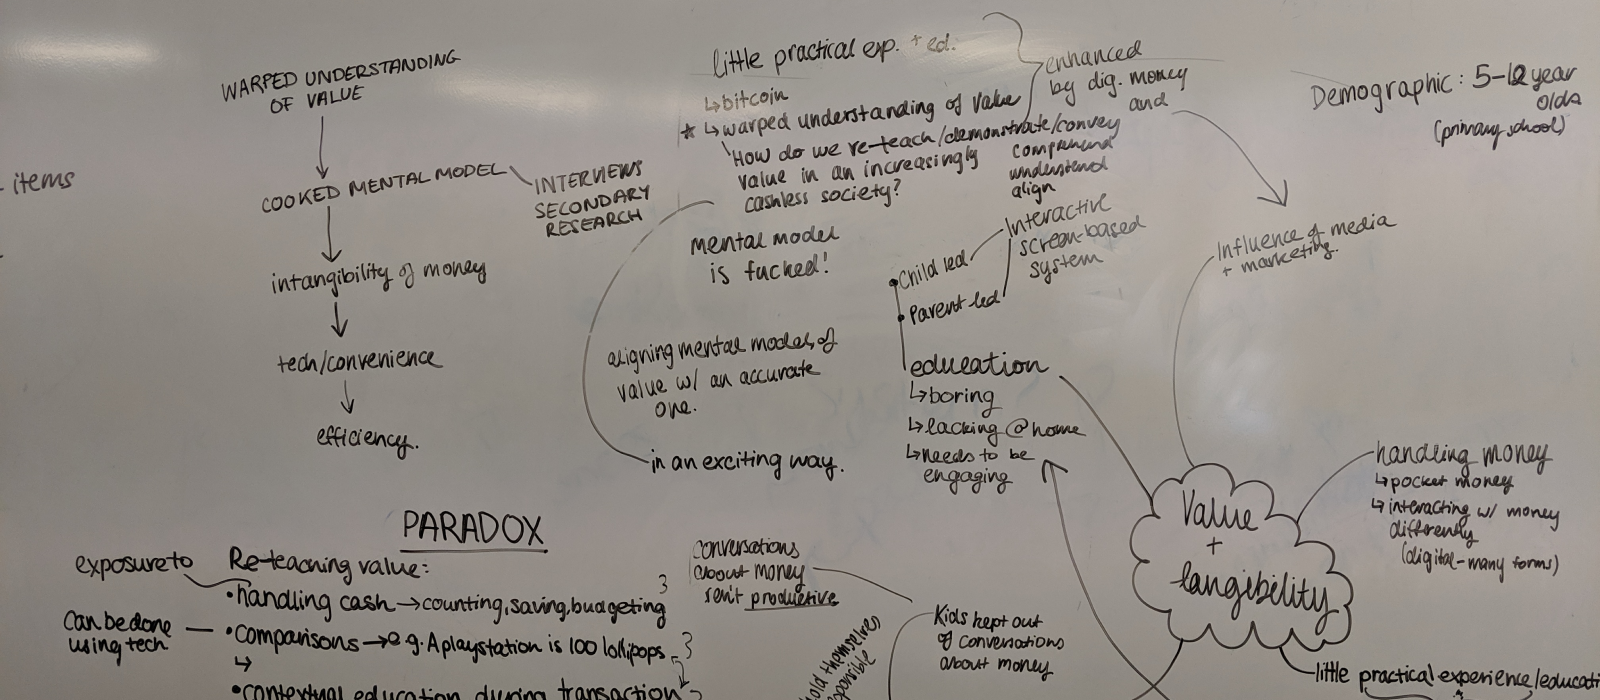 items
WARPED UNDERSTANDING
OF VALUE
COOKED MENTAL MODEL
INTERVIEWS
SECONDARY
RESEARCH
intangibility of money
tech/convenience
efficiency.
little practical exp. + ed.
↳bitcoin
* ↳warped understanding of value
How do we re-teach/demonstrate/convey
value in an increasingly
cashless society?
comprehend
understand
align
enhanced
by dig. money
and
mental model
is fucked!
aligning mental models of
value w/ an accurate
one.
in an exciting way.
Interactive
screen-based
system
Child led
Parent-led
education
↳boring
↳lacking @ home
↳needs to be
engaging
Demographic: 5-12 year
olds
(primary school)
Influence of media
+ marketing.
Value
+
tangibility
handling money
↳pocket money
↳interacting w/ money
differently
(digital-many forms)
little practical experience/educati
PARADOX
exposure to
Re-teaching value:
•handling cash → counting, saving, budgeting
Can be done
using tech
•comparisons → e.g. A playstation is 100 lollipops
↳
•contextual education during transaction
conversations
about money
isn't productive
Kids kept out
of conversations
about money
old themselves
ponsible